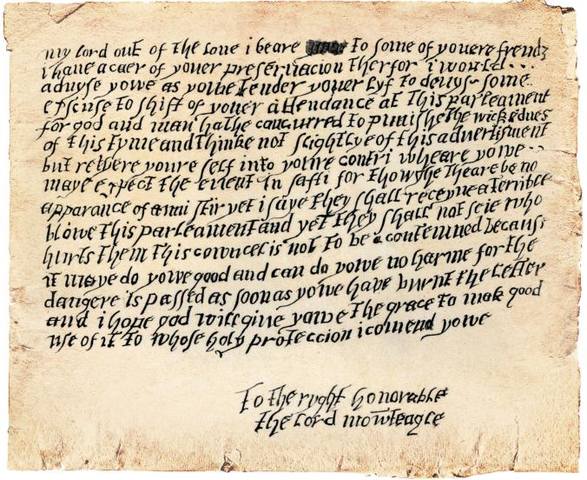 my lord out of the loue i beare to some of youere frendz
i haue a caer of youer preseruacion therfor i would
aduyse yowe as yowe tender youer lyf to deuys some
exscuse to shift of youer attendance at this parleament
for god and man hathe concurred to punishe the wickednes
of this tyme and thinke not slightlye of this aduertisment
but retyere youre self into youre contri wheare yowe
maye expect the euent in safti for thowghe theare be no
apparance of anni stir yet i saye they shall receyue a terrible
blowe this parleament and yet they shall not seie who
hurts them this cowncel is not to be contemned because
it maye do yowe good and can do yowe no harme for the
dangere is passed as soon as yowe haue burnt the letter
and i hope god will giue yowe the grace to mak good
use of it to whose holy proteccion i comend yowe
to the ryght honorable
the lord mowteagle